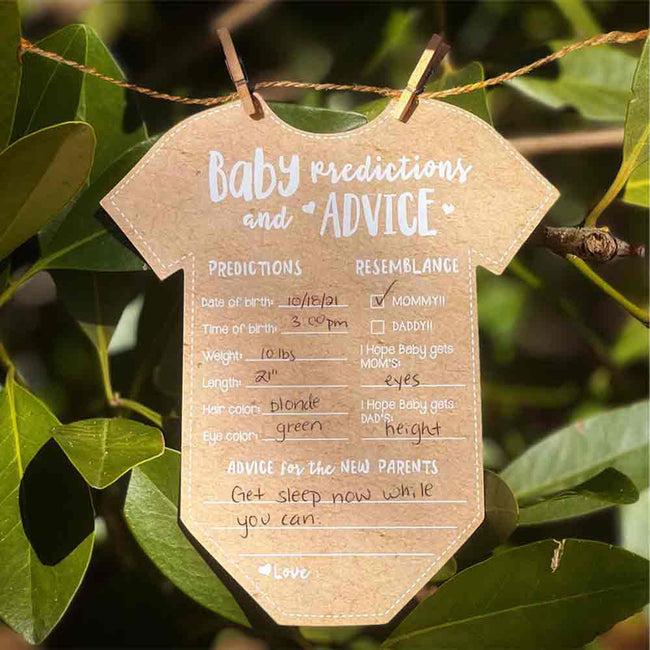 Baby Predictions
and ADVICE
PREDICTIONS
Date of birth: 10/18/21
Time of birth: 3:00pm
Weight: 10 lbs
Length: 21"
Hair color: blonde
Eye color: green
RESEMBLANCE
MOMMY!!
DADDY!!
I Hope Baby gets
MOM'S:
eyes
I Hope Baby gets
DAD'S:
height
ADVICE for the NEW PARENTS
Get sleep now while
you can.
Love